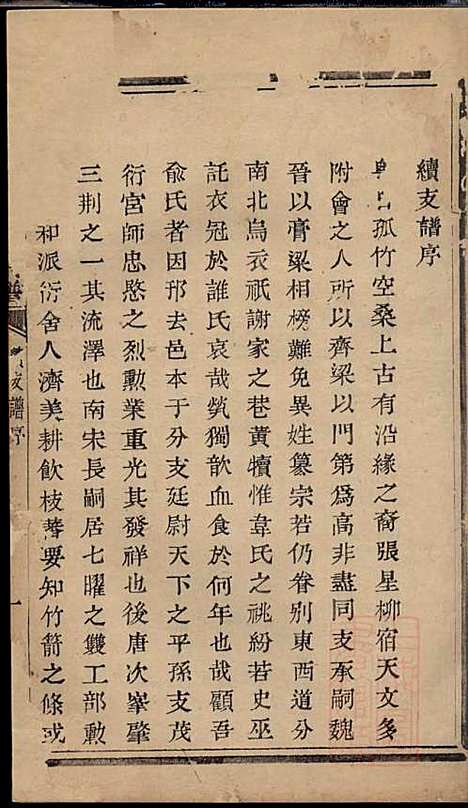 續支譜序
孤竹空桑上古有沿緣之裔張星柳宿天文多
附會之人所以齊梁以門第爲高非盡同支承嗣魏
晉以膏梁相榜難免異姓纂宗若仍眷别東西道分
南北烏衣祇謝家之巷黃犢惟韋氏之祧紛若史巫
託衣冠於誰氏哀哉煢獨歆血食於何年也哉顧吾
俞氏者因邘去邑本于分支廷尉天下之平孫支茂
衍宮師忠愍之烈勲業重光其發祥也後唐次峯肇
三荆之一其流澤也南宋長嗣居七曜之雙工部勲
和派衍舍人濟美耕飲枝蕃要知竹箭之條或
支譜序
一